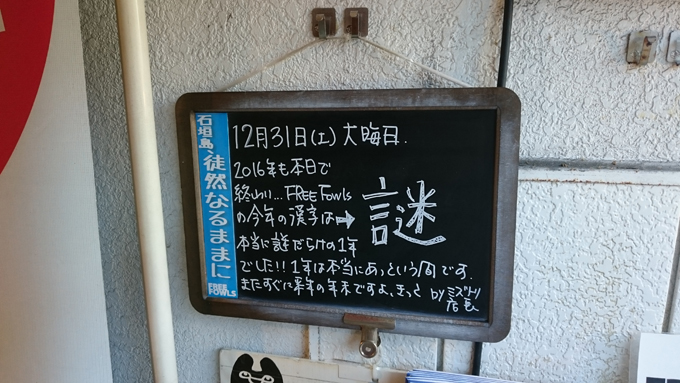 石垣島 徒然なるままに
FREE FOWLS
12月31日(土) 大晦日.
2016年も本日で
終わり... FREE Fowls
の今年の漢字は→
謎
本当に謎だらけの1年
でした!! 1年は本当にあっという間です.
またすぐに来年の年末ですよ、きっと by ミズトリ店長